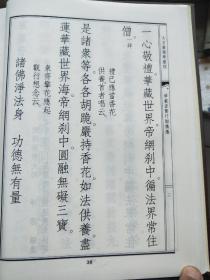 一心敬禮華藏世界帝網剎中。徧法界常住
僧。拜
禮已應當香花
供養首者唱云。
是諸眾等。各各胡跪。嚴持香花。如法供養盡
蓮華藏世界海帝網剎中。圓融無礙三寶。
衆齊擎花應起
觀行想念云。
諸佛淨法身　功德無有量